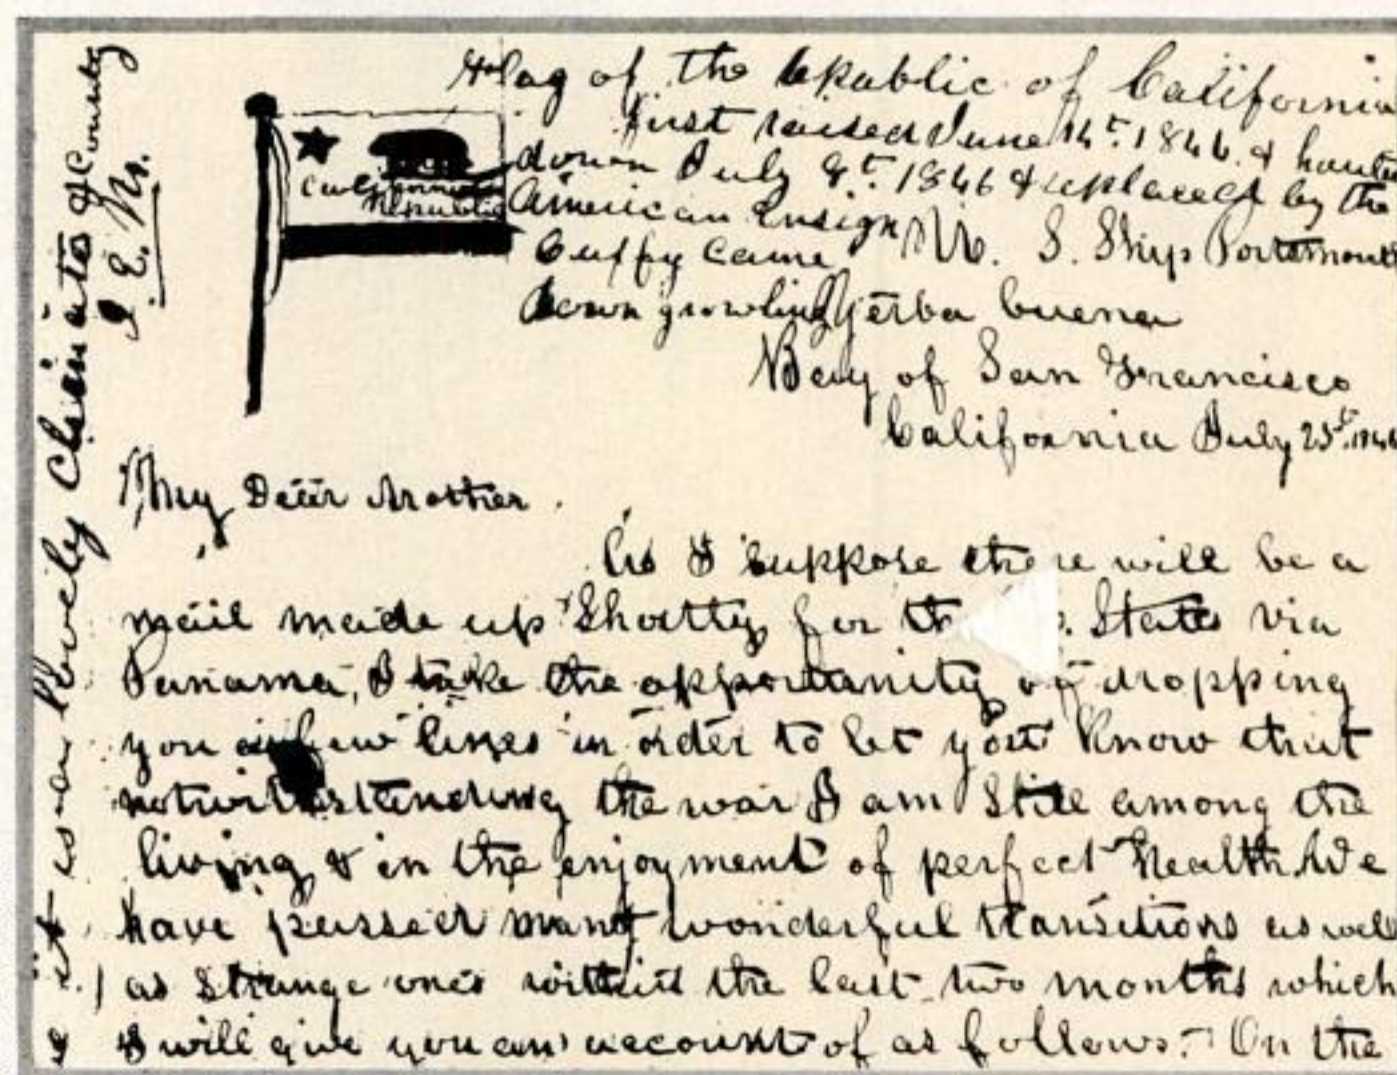 Flag of the Republic of California
first raised June 14th. 1846. & hauled
down July 9th. 1846 & replaced by the
American Ensign
Cuffy came
down growling
U. S. Ship Portsmouth
Yerba buena
Bay of San Francisco
California July 25th. 1846
California
Republic
My Dear Mother.
As I suppose there will be a
mail made up Shortly for th . States via
Panama, I take the opportunity of dropping
you a few lines in order to let you Know that
notwithstanding the war I am Still among the
living & in the enjoyment of perfect Health. We
have passed many wonderful transitions as well
as Strange ones within the last two months which
I will give you an account of as follows:- On the
it is a lovely Climate & County
J. E. M.